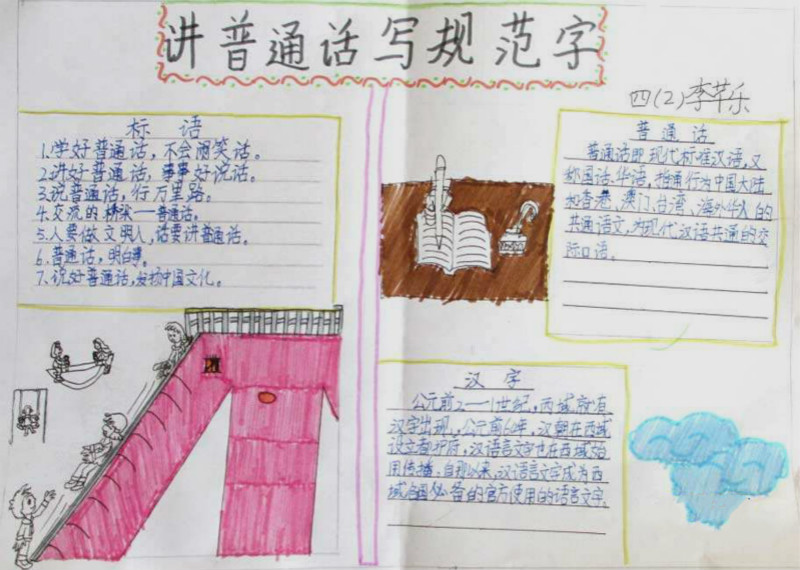 讲普通话写规范字
四(2)李芊乐
标 语
1.学好普通话，不会闹笑话。
2.讲好普通话，事事好说话。
3.说普通话，行万里路。
4.交流的桥梁——普通话。
5.人要做文明人，话要讲普通话。
6.普通话，明白事。
7.说好普通话，发扬中国文化。
普 通 话
普通话即现代标准汉语，又
称国语、华语，指通行为中国大陆
和香港、澳门、台湾、海外华人的
共通语文，为现代汉语共通的交
际口语。
汉 字
公元前2——1世纪，西域就有
汉字出现，公元前60年，汉朝在西域
设立都护府，汉语言文字也在西域
用传播，自那以来，汉语言文字成为西
域各国必备的官方使用的语言文字。